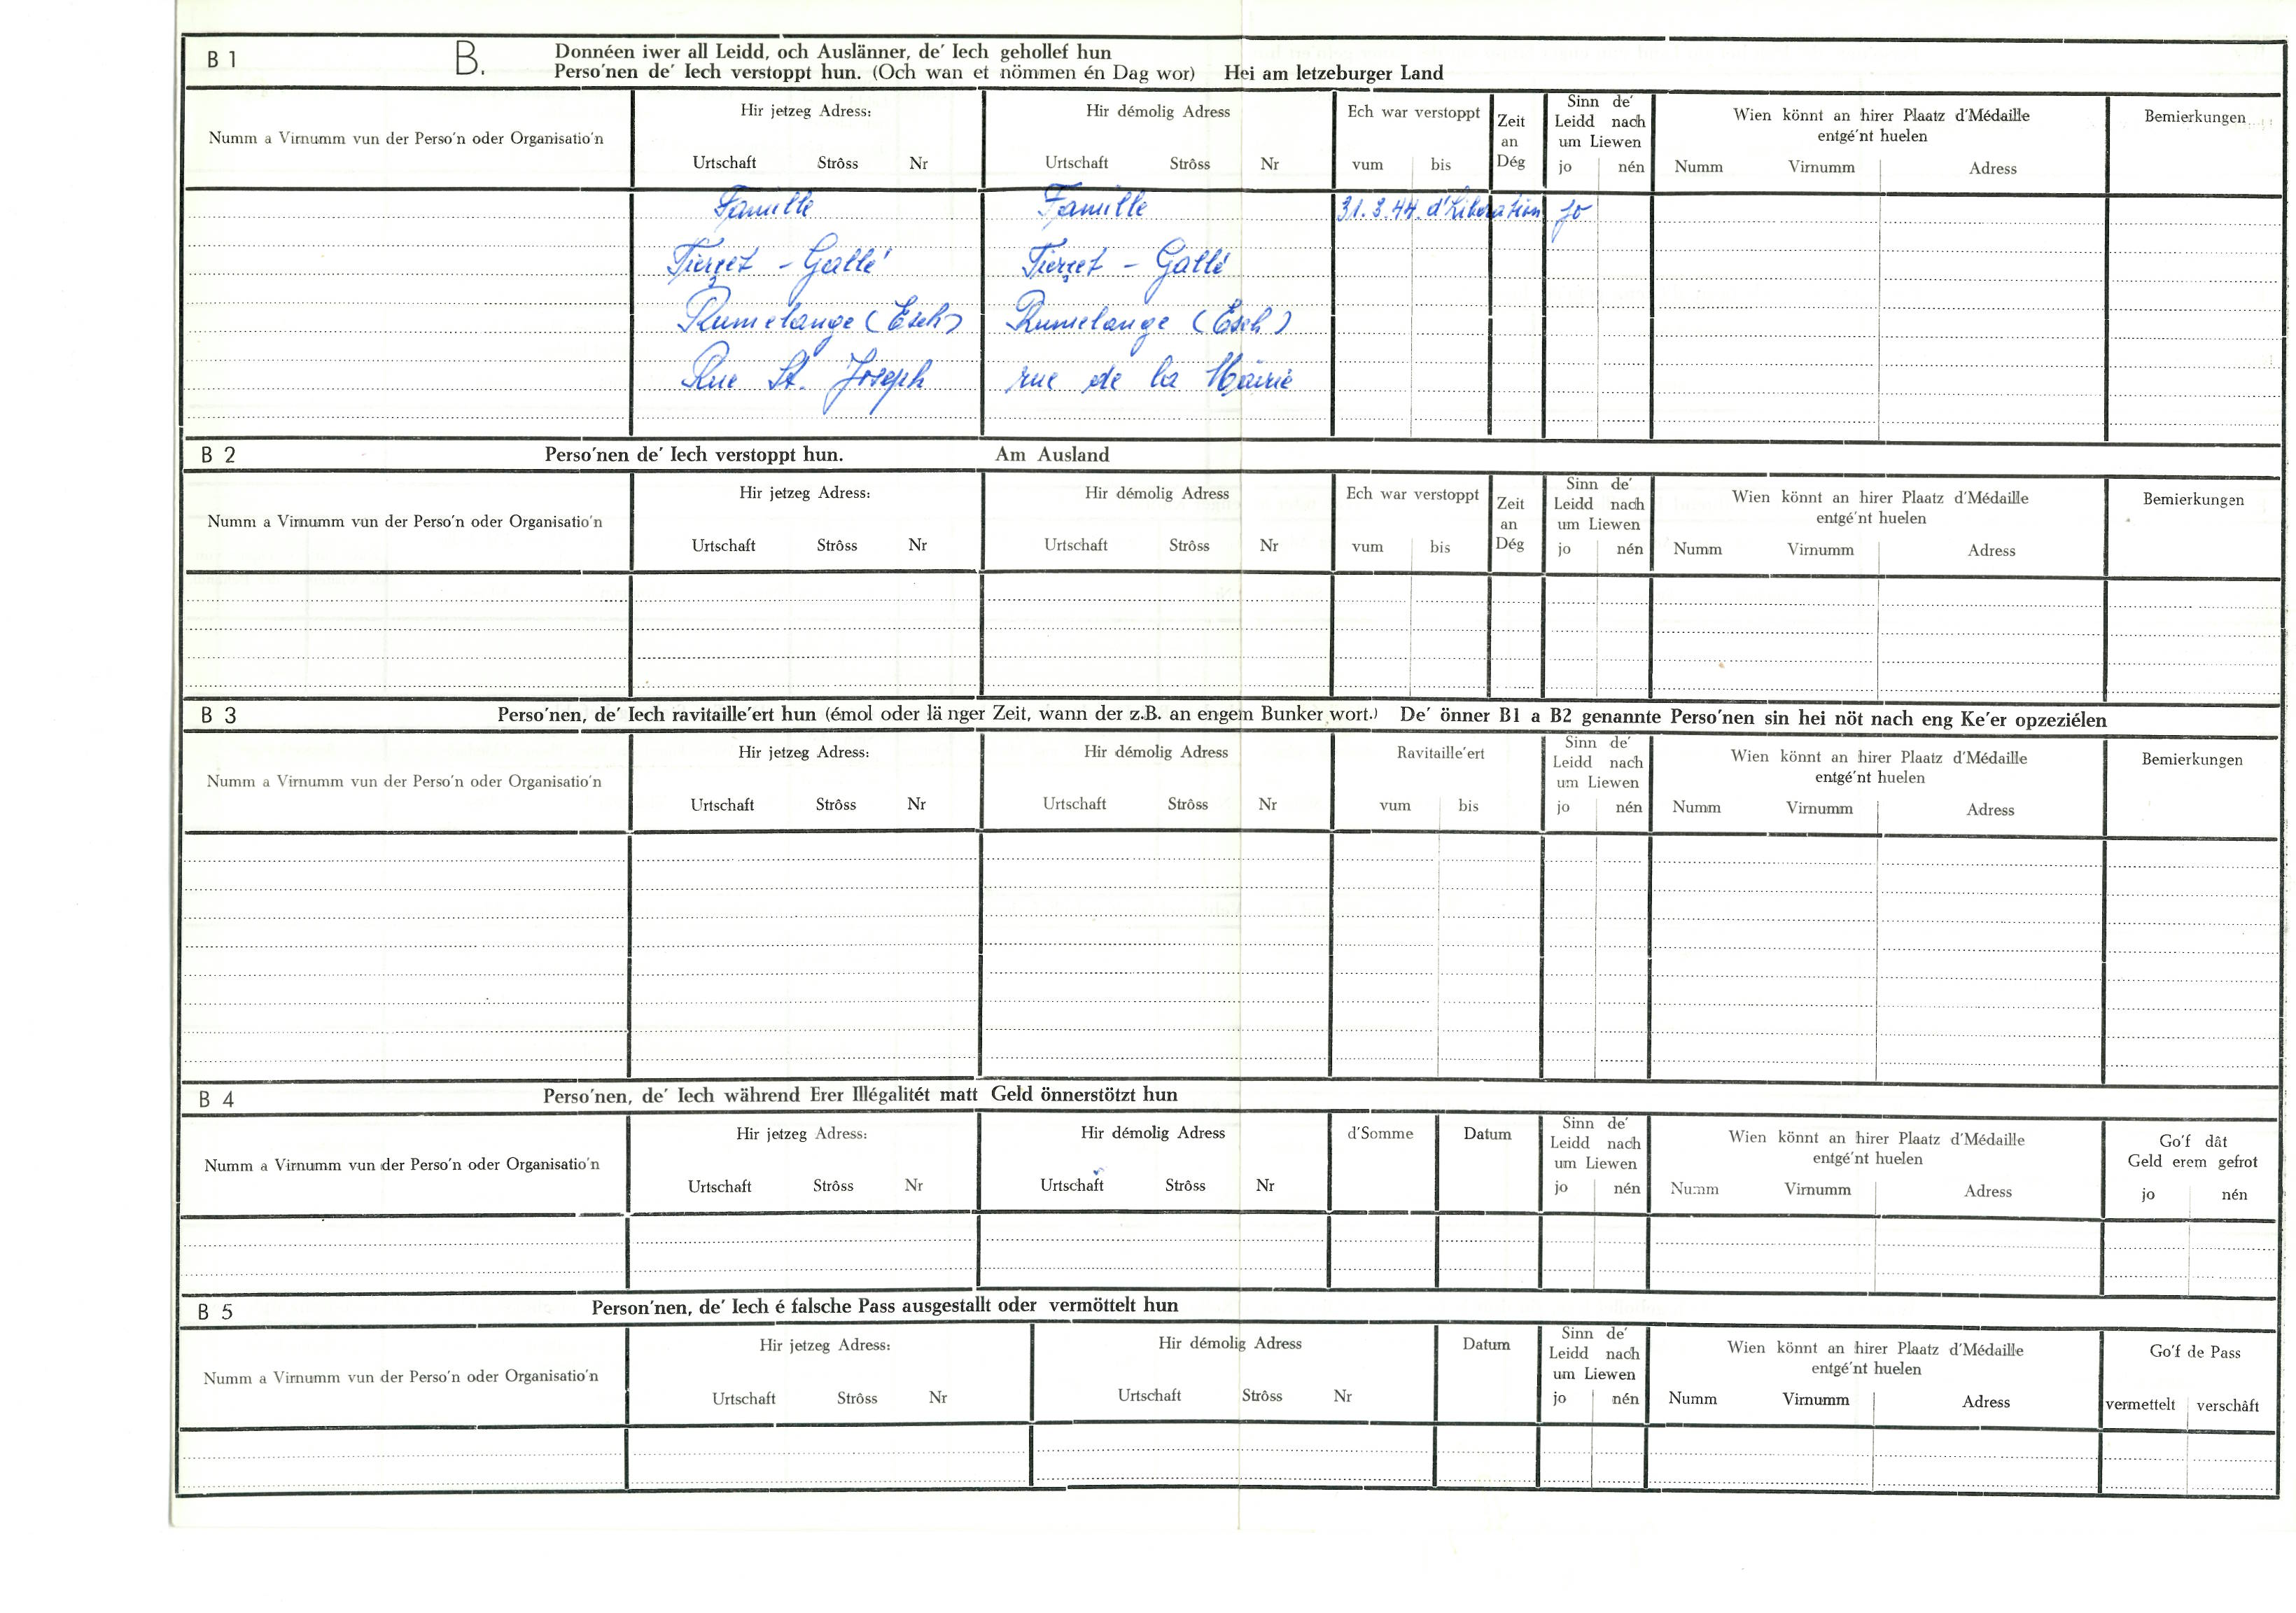 B 1 B. Donnéen iwer all Leidd, och Auslänner, de′ Iech gehollef hun
Perso′nen de′ Iech verstoppt hun. (Och wan et nömmen én Dag wor) Hei am letzeburger Land
Numm a Virnumm vun der Perso′n oder Organisatio′n
Hir jetzeg Adress:
Urtschaft Strôss Nr
Hir démolig Adress
Urtschaft Strôss Nr
Ech war verstoppt
vum bis
Zeit
an
Dég
Sinn de′
Leidd nach
um Liewen
jo nén
Wien könnt an hirer Plaatz d′Médaille
entgé′nt huelen
Numm Virnumm Adress
Bemierkungen
Famille Famille 31.3.44 d'Liberation jo
Tierçet - Gallé Tierçet - Gallé
Rumelange (Esch) Rumelange (Esch)
Rue St. Joseph rue de la Mairie
B 2 Perso′nen de′ Iech verstoppt hun. Am Ausland
Numm a Virnumm vun der Perso′n oder Organisatio′n
Hir jetzeg Adress:
Urtschaft Strôss Nr
Hir démolig Adress
Urtschaft Strôss Nr
Ech war verstoppt
vum bis
Zeit
an
Dég
Sinn de′
Leidd nach
um Liewen
jo nén
Wien könnt an hirer Plaatz d′Médaille
entgé′nt huelen
Numm Virnumm Adress
Bemierkungen
B 3 Perso′nen, de′ Iech ravitaille′ert hun (émol oder lä nger Zeit, wann der z.B. an engem Bunker wort.) De′ önner B1 a B2 genannte Perso′nen sin hei nöt nach eng Ke′er opzeziélen
Numm a Virnumm vun der Perso′n oder Organisatio′n
Hir jetzeg Adress:
Urtschaft Strôss Nr
Hir démolig Adress
Urtschaft Strôss Nr
Ravitaille′ert
vum bis
Sinn de′
Leidd nach
um Liewen
jo nén
Wien könnt an hirer Plaatz d′Médaille
entgé′nt huelen
Numm Virnumm Adress
Bemierkungen
B 4 Perso′nen, de′ Iech während Erer Illégalitét matt Geld önnerstötzt hun
Numm a Virnumm vun der Perso′n oder Organisatio′n
Hir jetzeg Adress:
Urtschaft Strôss Nr
Hir démolig Adress
Urtschaft Strôss Nr
d′Somme
Datum
Sinn de′
Leidd nach
um Liewen
jo nén
Wien könnt an hirer Plaatz d′Médaille
entgé′nt huelen
Numm Virnumm Adress
Go′f dât
Geld erem gefrot
jo nén
B 5 Person′nen, de′ Iech é falsche Pass ausgestallt oder vermöttelt hun
Numm a Virnumm vun der Perso′n oder Organisatio′n
Hir jetzeg Adress:
Urtschaft Strôss Nr
Hir démolig Adress
Urtschaft Strôss Nr
Datum
Sinn de′
Leidd nach
um Liewen
jo nén
Wien könnt an hirer Plaatz d′Médaille
entgé′nt huelen
Numm Virnumm Adress
Go′f de Pass
vermettelt verschâft